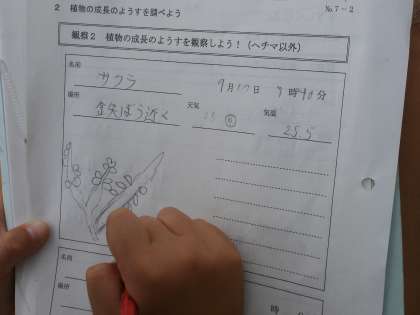 2 植物の成長のようすを調べよう No.7-2
観察2 植物の成長のようすを観察しよう!(ヘチマ以外)
名前 サクラ 9月17日 9時40分
場所 てつぼう近く 天気 気温 25.5
名前 時 分
場所